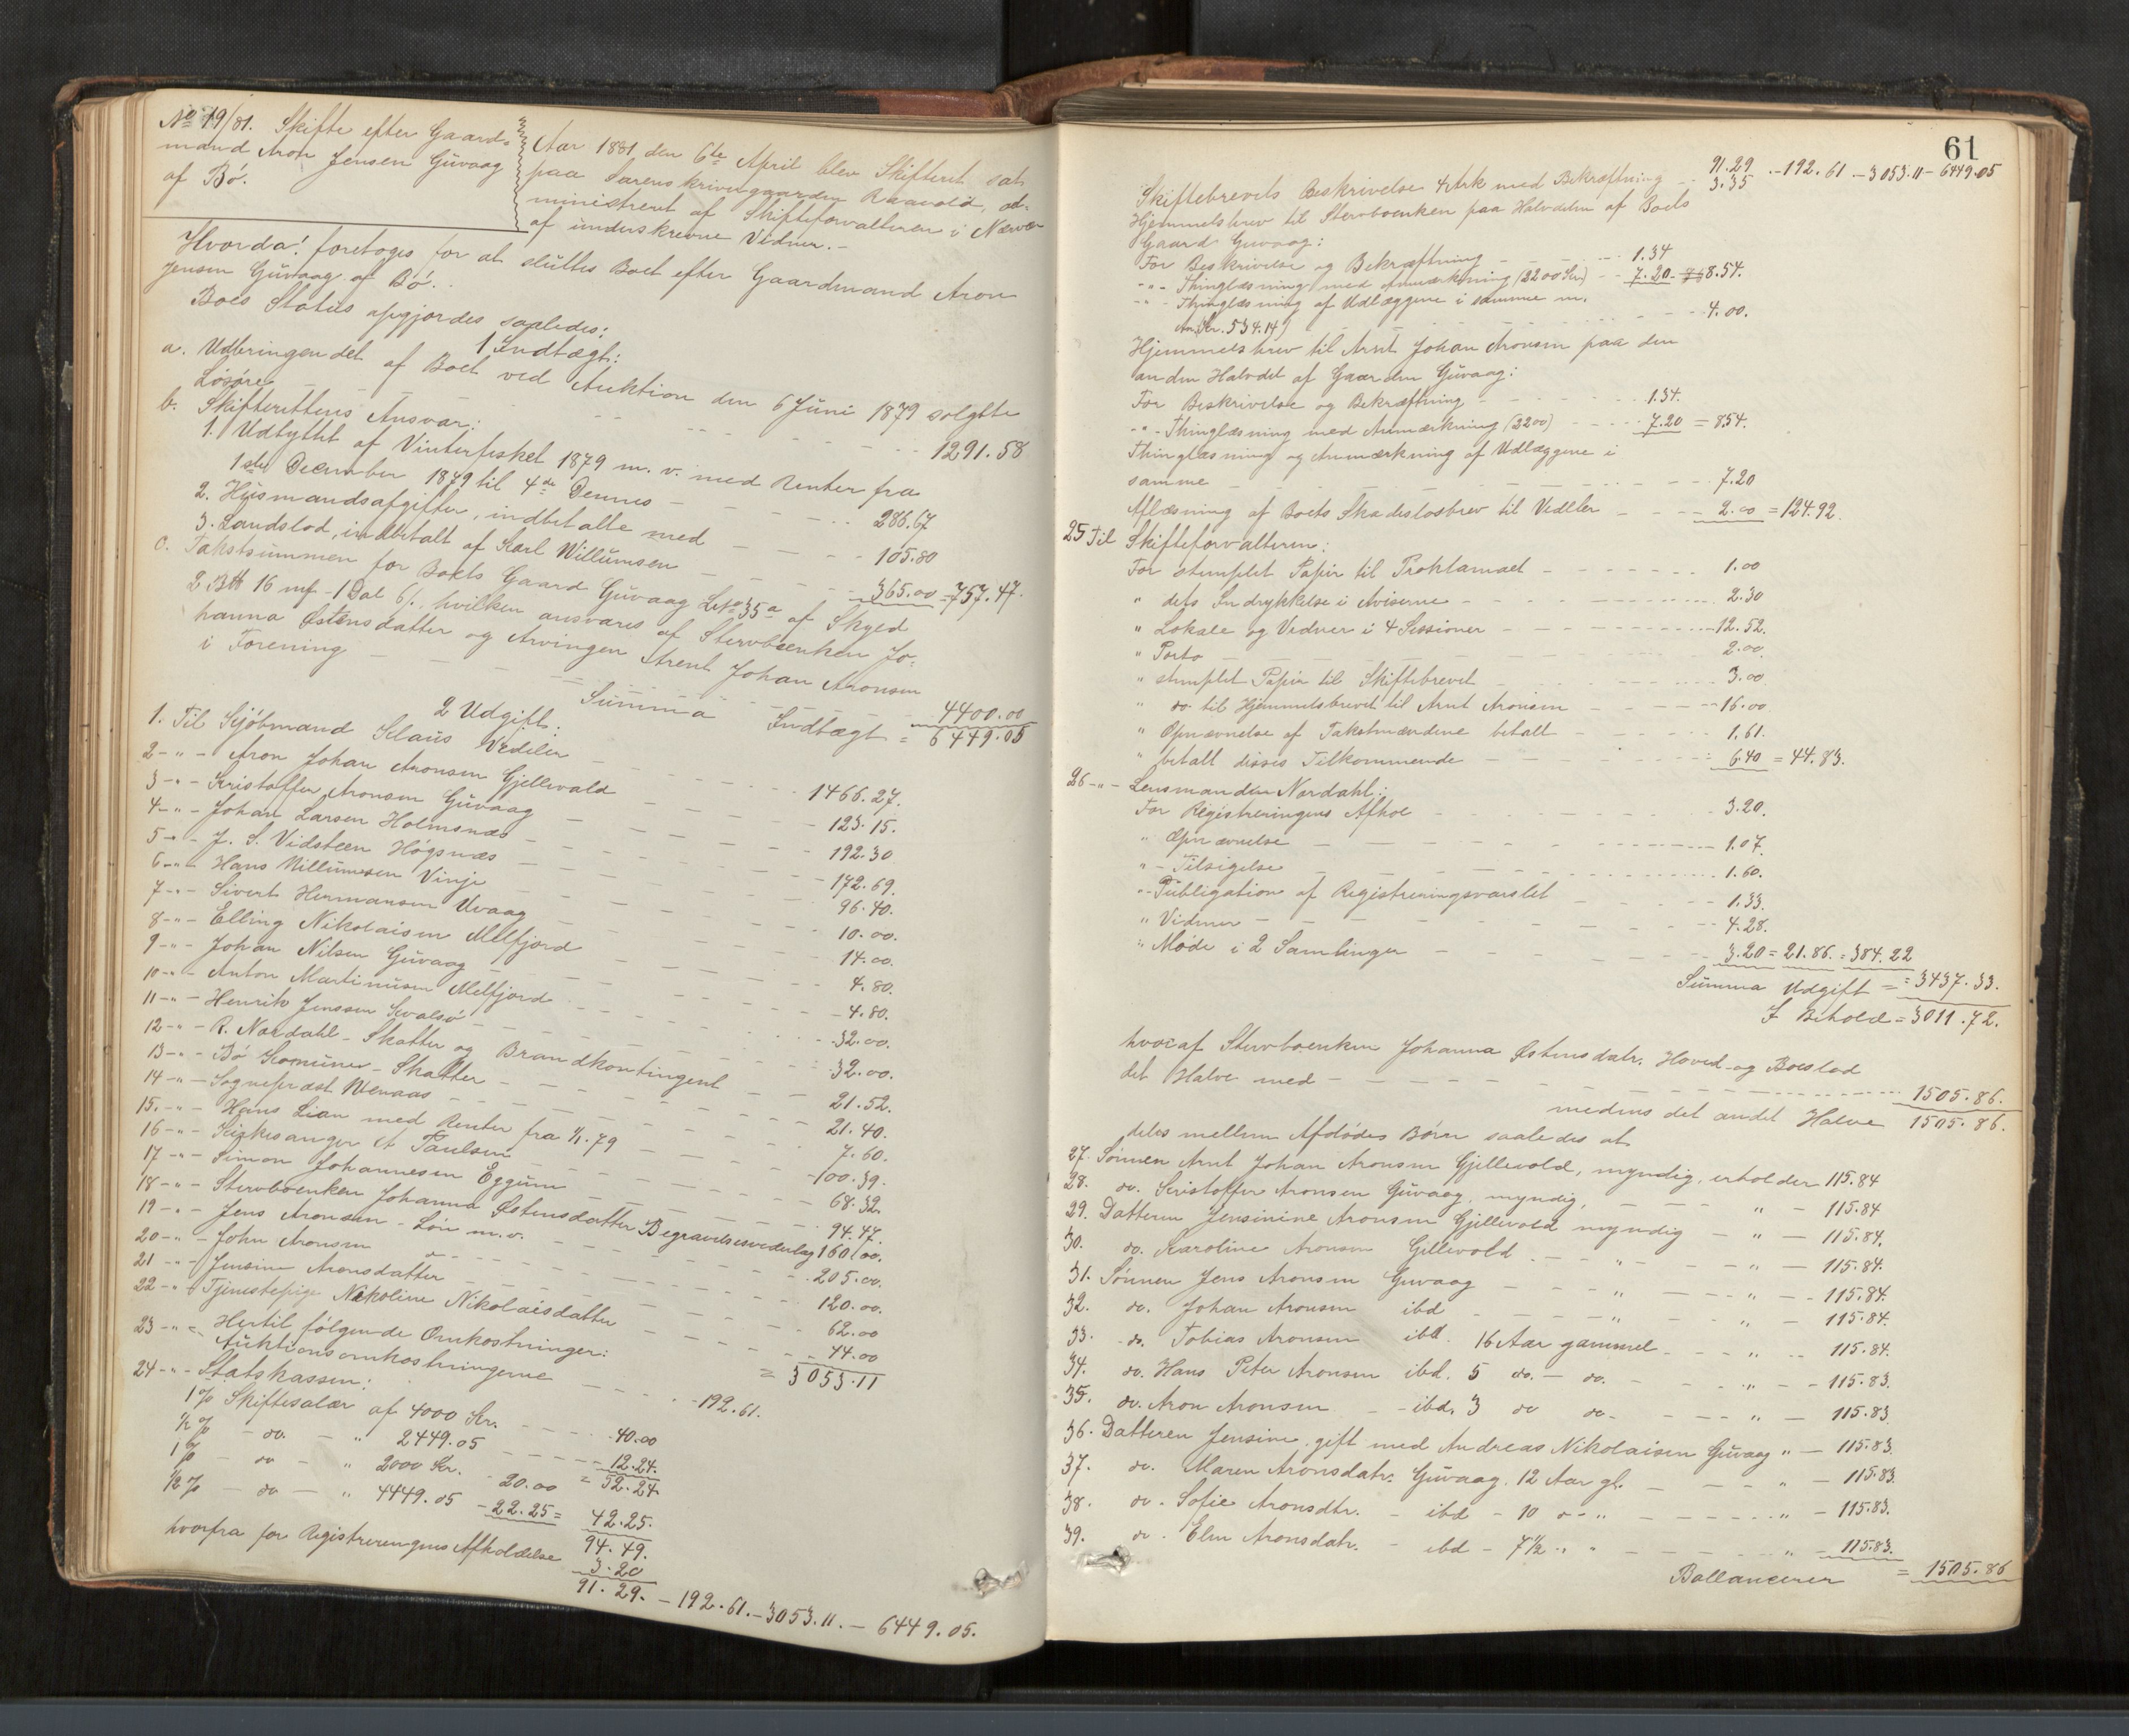 No 19/81. Skifte efter Gaard-
mand Aron Jensen Guvaag
af Bø.
Aar 1881 den 6te April blev Skifteret sat
paa Sorenskrivergaarden Raavold, ad-
ministreret af Skifteforvalteren i Nærvær
af underskrevne Vidner.-
Hvorda! foretoges for at sluttes Boet efter Gaardmand Aron
Jensen Guvaag af Bø.
Boets Status opgjordes saaledes:
1 Indtægt:
a. Udbringendet af Boet ved Auktion den 6 Juni 1879 solgte
Løsøre - - - 1291.58
b. Skifterettens Ansvar:
1. Udbyttet af Vinterfisket 1879 m. v. med Renter fra
1ste December 1879 til 4de Dennes - - - 286.67
2. Husmandsafgifter, indbetalte med - - - 105.80
3. Landslod, indbetalt af Karl Willumsen - - - 365.00 = 757.47.
c. Takstsummen for Boets Gaard Guvaag LNo 35a af Skyld
2 Btt 16 mf - 1 Dal 6 s. hvilken ansvares af Stervboenken Jo-
hanna Østensdatter og Arvingen Arent Johan Aronsen
i Forening - - - 4400.00
Summa Indtægt = 6449.05
2 Udgift:
1. Til Sjøbmand Klaus Vedeler - - - 1466.27.
2 - " - Aron Johan Aronsen Gjellevald - - - 123.15.
3 - " - Kristoffer Aronsen Guvaag - - - 192.30
4 - " - Johan Larsen Holmsnæs - - - 172.69.
5 - " - J. S. Vidsteen Høgsnæs - - - 96.40.
6 - " - Hans Willumsen Vinje - - - 10.00.
7 - " - Sivert Hermansen Uvaag - - - 14.00.
8 - " - Elling Nikolaisen Melfjord - - - 4.80.
9 - " - Johan Nilsen Guvaag - - - 4.80.
10 - " - Anton Martinusen Melfjord - - - 32.00.
11 - " - Henrik Jenssen Kvalsø - - - 32.00.
12 - " - R. Nordahl - Skatter og Brandkontingent - - 21.52.
13 - " - Bø Komune - Skatter - - - 21.40.
14 - " - Sognepræst Wenaas - - - 7.60.
15. - " - Hans Lian med Renter fra 1/1.79 - - - 100.39.
16 - " - Kirkesanger A Paulsen - - - 68.32.
17 - " - Simon Johannesen Eggum - - - 94.47.
18 - " - Stervboenken Johanna Østensdatter Begravelsesvederlag 160.00.
19 - " - Jens Aronsen - Løn m.v. - - - 205.00.
20 - " - John Aronsen - do - - - 120.00.
21 - " - Jensine Aronsdatter - - - 62.00
22 - " - Tjenestepige Nikoline Nikolaisdatter - - - 44.00
= 3053.11
Hertil følgende Omkostninger:
23 - " - Auktionsomkostningerne - - - 192.61.
24 - " - Statskassen:
1 % Skiftesalær af 4000 Kr. - - - 40.00
1/2 % - do. - " 2449.05 - - - 12.24.
= 52.24
1 % - do - " 2000 Kr. - 20.00
1/2 % - do - " 4449.05 - 22.25 = 42.25.
94.49.
hvorfra for Registreringens Afholdelse 3.20
91.29. - 192.61. - 3053.11. - 6449.05.
61
91.29 - 192.61 - 3053.11 - 6449.05
Skiftebrevets Beskrivelse 4 Ark med Bekræftning - 3.35
Hjemmelsbrev til Stervboenken paa Halvdelen af Boets
Gaard Guvaag:
For Beskrivelse og Bekræftning - - - 1.34
- " - Thinglæsning med Anmærkning (2200 Kr) - - 7.20 - 8.54.
- " - Thinglæsning af Udlæggene i samme m.
Anm. (Kr. 534.14) - - - 4.00.
Hjemmelsbrev til Arnt Johan Aronsen paa den
anden Halvdel af Gaarden Guvaag:
For Beskrivelse og Bekræftning - - - 1.34.
- " - Thinglæsning med Anmærkning (2200) - - - 7.20 = 8.54.
Thinglæsning og Anmærkning af Udlæggene i
samme - - - 7.20
Aflæsning af Boets Skadesløsbrev til Vedeler - - - 2.00 = 124.92.
25 Til Skifteforvalteren:
For stemplet Papir til Proklamaet - - - 1.00
" dets Indrykkelse i Aviserne - - - 2.30
" Lokale og Vidner i 4 Sessioner - - - 12.52.
" Porto - - - 2.00.
" stemplet Papir til Skiftebrevet - - - 3.00
" do til Hjemmelsbrevet til Arnt Aronsen - - - 16.00.
" Opnævnelse af Takstmændene betalt - - - 1.61.
" betalt disses Tilkommende - - - 6.40 = 44.83.
26 - " - Lensmanden Nordahl:
For Registreringens Afhol - - - 3.20.
" Opnævnelse - - - 1.07.
" - Tilsigelse - - - 1.60.
" - Publigation af Registreringsvarslet - - - 1.33.
" Vidner - - - 4.28.
" Møde i 2 Samlinger - - - 3.20 = 21.86. = 384.22
Summa Udgift = 3437.33.
I Behold = 3011.72.
hvoraf Stervboenken Johanna Østensdatr. Hoved- og Boeslod
det Halve med - - - 1505.86.
medens det andet Halve 1505.86.
deles mellem Afdødes Børn saaledes at
27. Sønnen Arnt Johan Aronsen Gjellevold, myndig, erholder 115.84
28. do. Kristoffer Aronsen Guvaag, myndig, - - " - 115.84
29. Datteren Jensinine Aronsen Gjellevold myndig - " - 115.84.
30. do. Karoline Aronsen Gjellevold - - " - - " - 115.84.
31. Sønnen Jens Aronsen Guvaag - - " - - " - 115.84.
32. do. Johan Aronsen ibd - - " - - " - 115.84.
33. do. Tobias Aronsen ibd. 16 Aar gammel - - " - 115.84.
34. do. Hans Peter Aronsen ibd. 5 do. - do. - - " - 115.83.
35. do. Aron Aronsen - - ibd. 3 do do - - - " - 115.83.
36. Datteren Jensine, gift med Andreas Nikolaisen Guvaag " - 115.83.
37. do. Maren Aronsdatr. Guvaag. 12 Aar gl. - - " - 115.83.
38. do. Sofie Aronsdtr. - ibd - 10 - " - " - - " - 115.83.
39. do. Elen Aronsdatr. - ibd - 7 1/2 " " - - " - 115.83.
Ballancerer = 1505.86